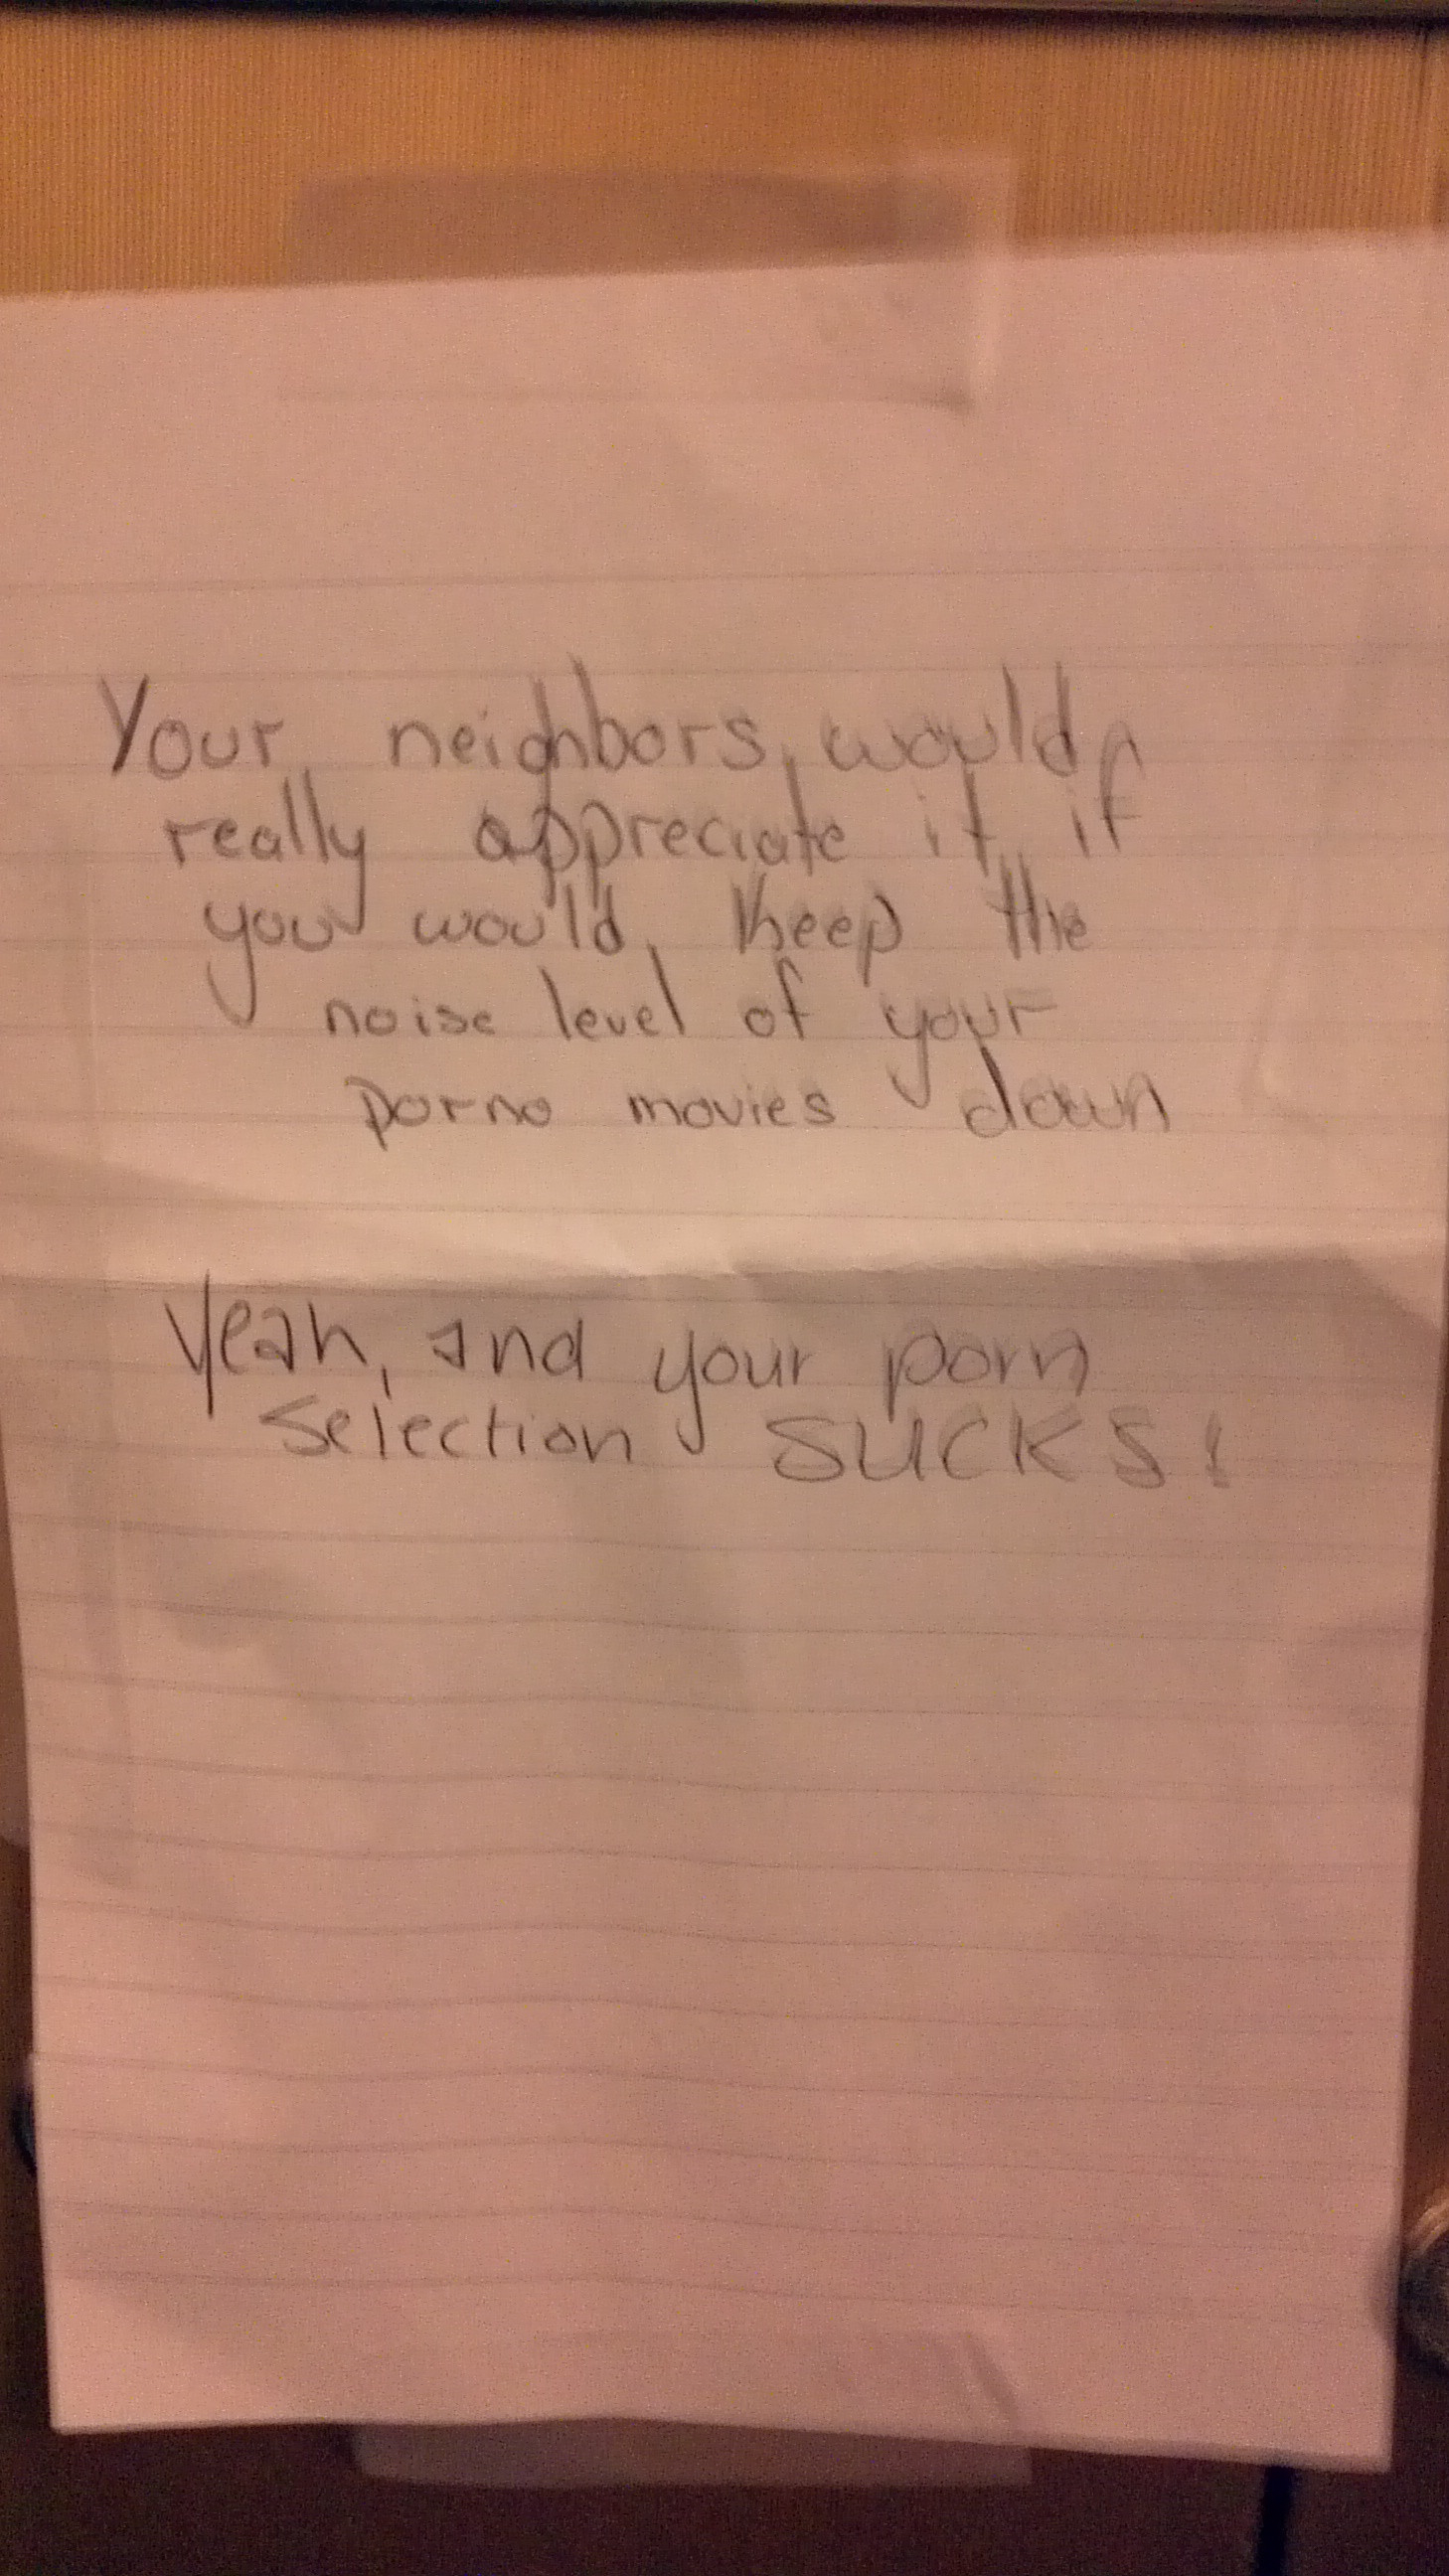 Your neighbors would
really appreciate it if
you would keep the
noise level of your
porno movies down
Yeah, and your porn
selection SUCKS!